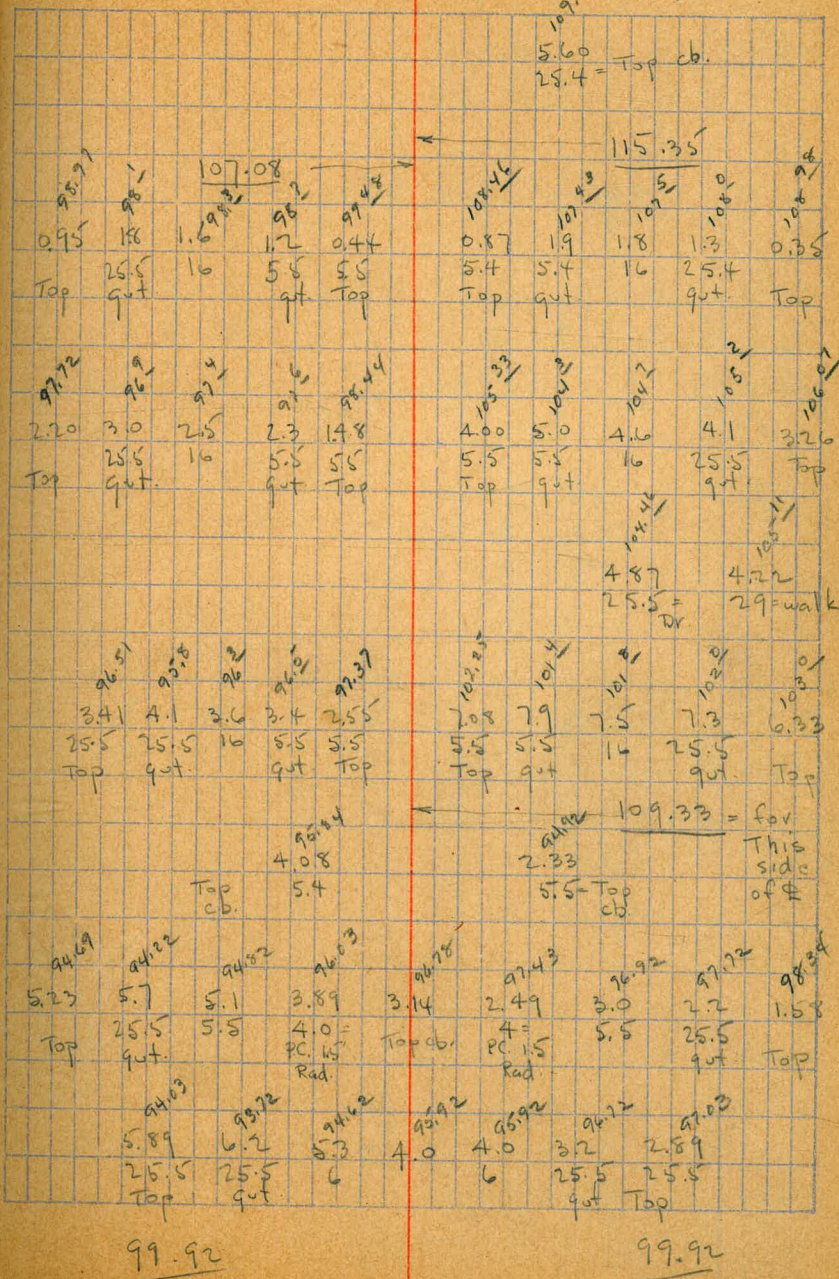 109.
5.60
25.4 = Top cb.
107.08 115.35
98.97 98.1 98.3 98.7 99.48 108.46 107.43 107.5 108.0 108.98
0.95 1.8 1.6 1.2 0.44 0.87 1.9 1.8 1.3 0.35
25.5 16 5.5 5.5 5.4 5.4 16 25.4
Top gut gut. Top Top gut gut. Top
97.72 96.9 97.4 97.6 98.44 105.33 104.3 104.7 105.2 106.07
2.20 3.0 2.5 2.3 1.48 4.00 5.0 4.6 4.1 3.26
25.5 16 5.5 5.5 5.5 5.5 16 25.5 Top
Top gut. gut Top Top gut gut.
104.46 105.11
4.87 4.22
25.5 = 29 = walk
Dr
96.51 95.8 96.3 96.5 97.37 102.25 101.4 101.8 102.0 103.0
3.41 4.1 3.6 3.4 2.55 7.08 7.9 7.5 7.3 6.33
25.5 25.5 16 5.5 5.5 5.5 5.5 16 25.5
Top gut. gut Top Top gut gut. Top
109.33 = for
This
side
of ℄
95.84 94.92
4.08 2.33
Top 5.4 5.5 = Top
cb. cb
94.69 94.22 94.82 96.03 96.78 97.43 96.92 97.72 98.34
5.23 5.7 5.1 3.89 3.14 2.49 3.0 2.2 1.58
25.5 5.5 4.0 = Top cb. 4 = 5.5 25.5
Top gut. PC. 1.5 PC. 1.5 gut Top
Rad. Rad.
94.03 93.72 94.62 95.92 95.92 96.72 97.03
5.89 6.2 5.3 4.0 4.0 3.2 2.89
25.5 25.5 6 6 25.5 25.5
Top gut gut Top
99.92 99.92